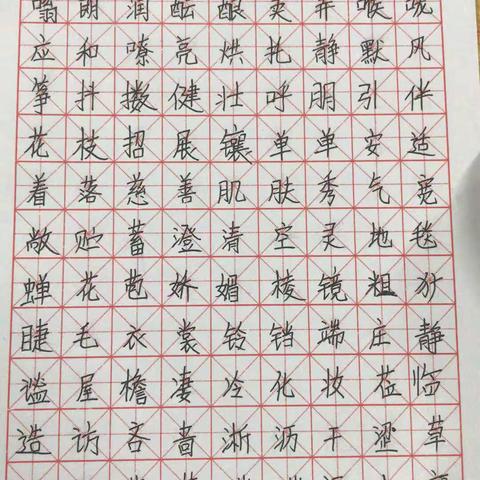 嗡朗润酝酿卖弄喉咙
应和嘹亮烘托静默风
筝抖擞健壮呼朋引伴
花枝招展镶单单安适
着落慈善肌肤秀气宽
敞贮蓄澄清空灵地毯
蝉花苞娇媚棱镜粗犷
睫毛衣裳铃铛端庄静
谧屋檐凄冷化妆莅临
造访吝啬淅沥干涩草